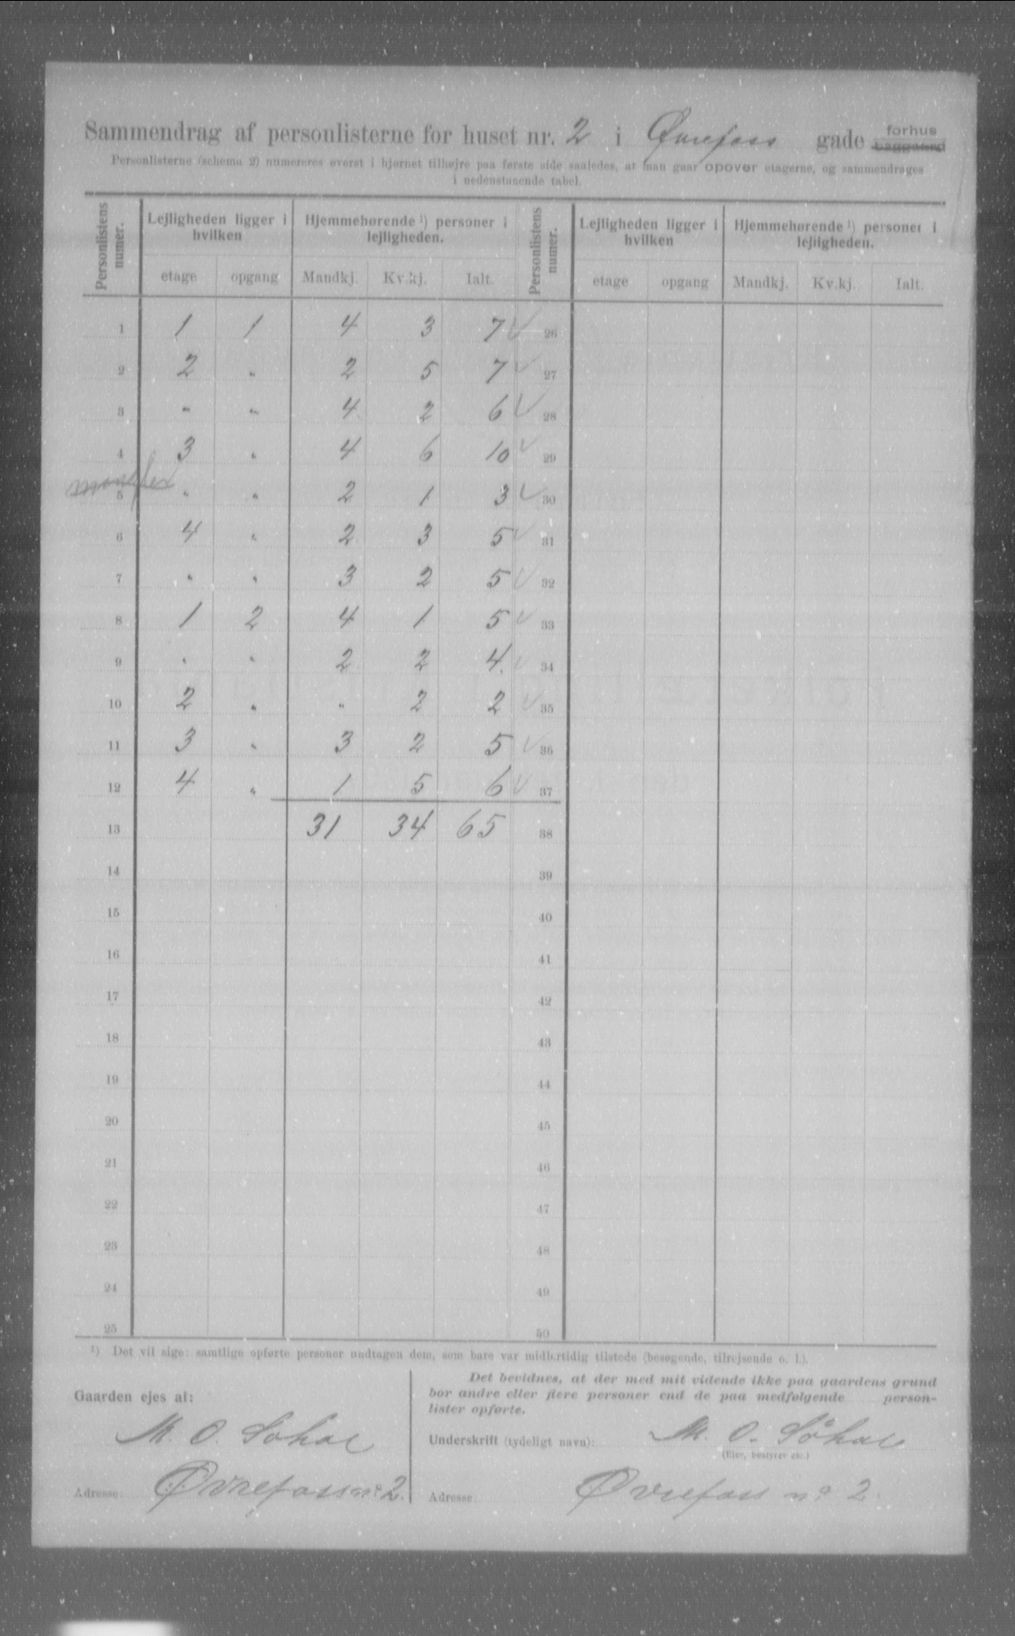 Sammendrag af personlisterne for huset nr. 2 i Øvrefoss gade forhus baggaard
Personlisterne (schema 2) numereres øverst i hjørnet tilhøjre paa første side saaledes, at man gaar opover etagerne, og sammendrages
i nedenstaaende tabel.
Personlistens numer. Lejligheden ligger i hvilken Hjemmehørende ¹) personer i lejligheden. Personlistens numer. Lejligheden ligger i hvilken Hjemmehørende ¹) personer i lejligheden.
etage opgang Mandkj. Kv.kj. Ialt. etage opgang Mandkj. Kv.kj. Ialt.
1 1 1 4 3 7 ✓ 26
2 2 " 2 5 7 ✓ 27
3 " " 4 2 6 ✓ 28
4 3 " 4 6 10 ✓ 29
5 " " 2 1 3 ✓ 30
6 4 " 2 3 5 ✓ 31
7 " " 3 2 5 ✓ 32
8 1 2 4 1 5 ✓ 33
9 " " 2 2 4 ✓ 34
10 2 " " 2 2 ✓ 35
11 3 " 3 2 5 ✓ 36
12 4 " 1 5 6 ✓ 37
13 31 34 65 38
14 39
15 40
16 41
17 42
18 43
19 44
20 45
21 46
22 47
23 48
24 49
25 50
¹) Det vil sige: samtlige opførte personer undtagen dem, som bare var midlertidig tilstede (besøgende, tilrejsende o. l.).
Gaarden ejes af:
M. O. Sohol
Adresse: Øvrefoss nº 2.
Det bevidnes, at der med mit vidende ikke paa gaardens grund
bor andre eller flere personer end de paa medfølgende person-
lister opførte.
Underskrift (tydeligt navn): M. O. Söhol
(Eier, bestyrer etc.)
Adresse: Øvrefoss nº 2.